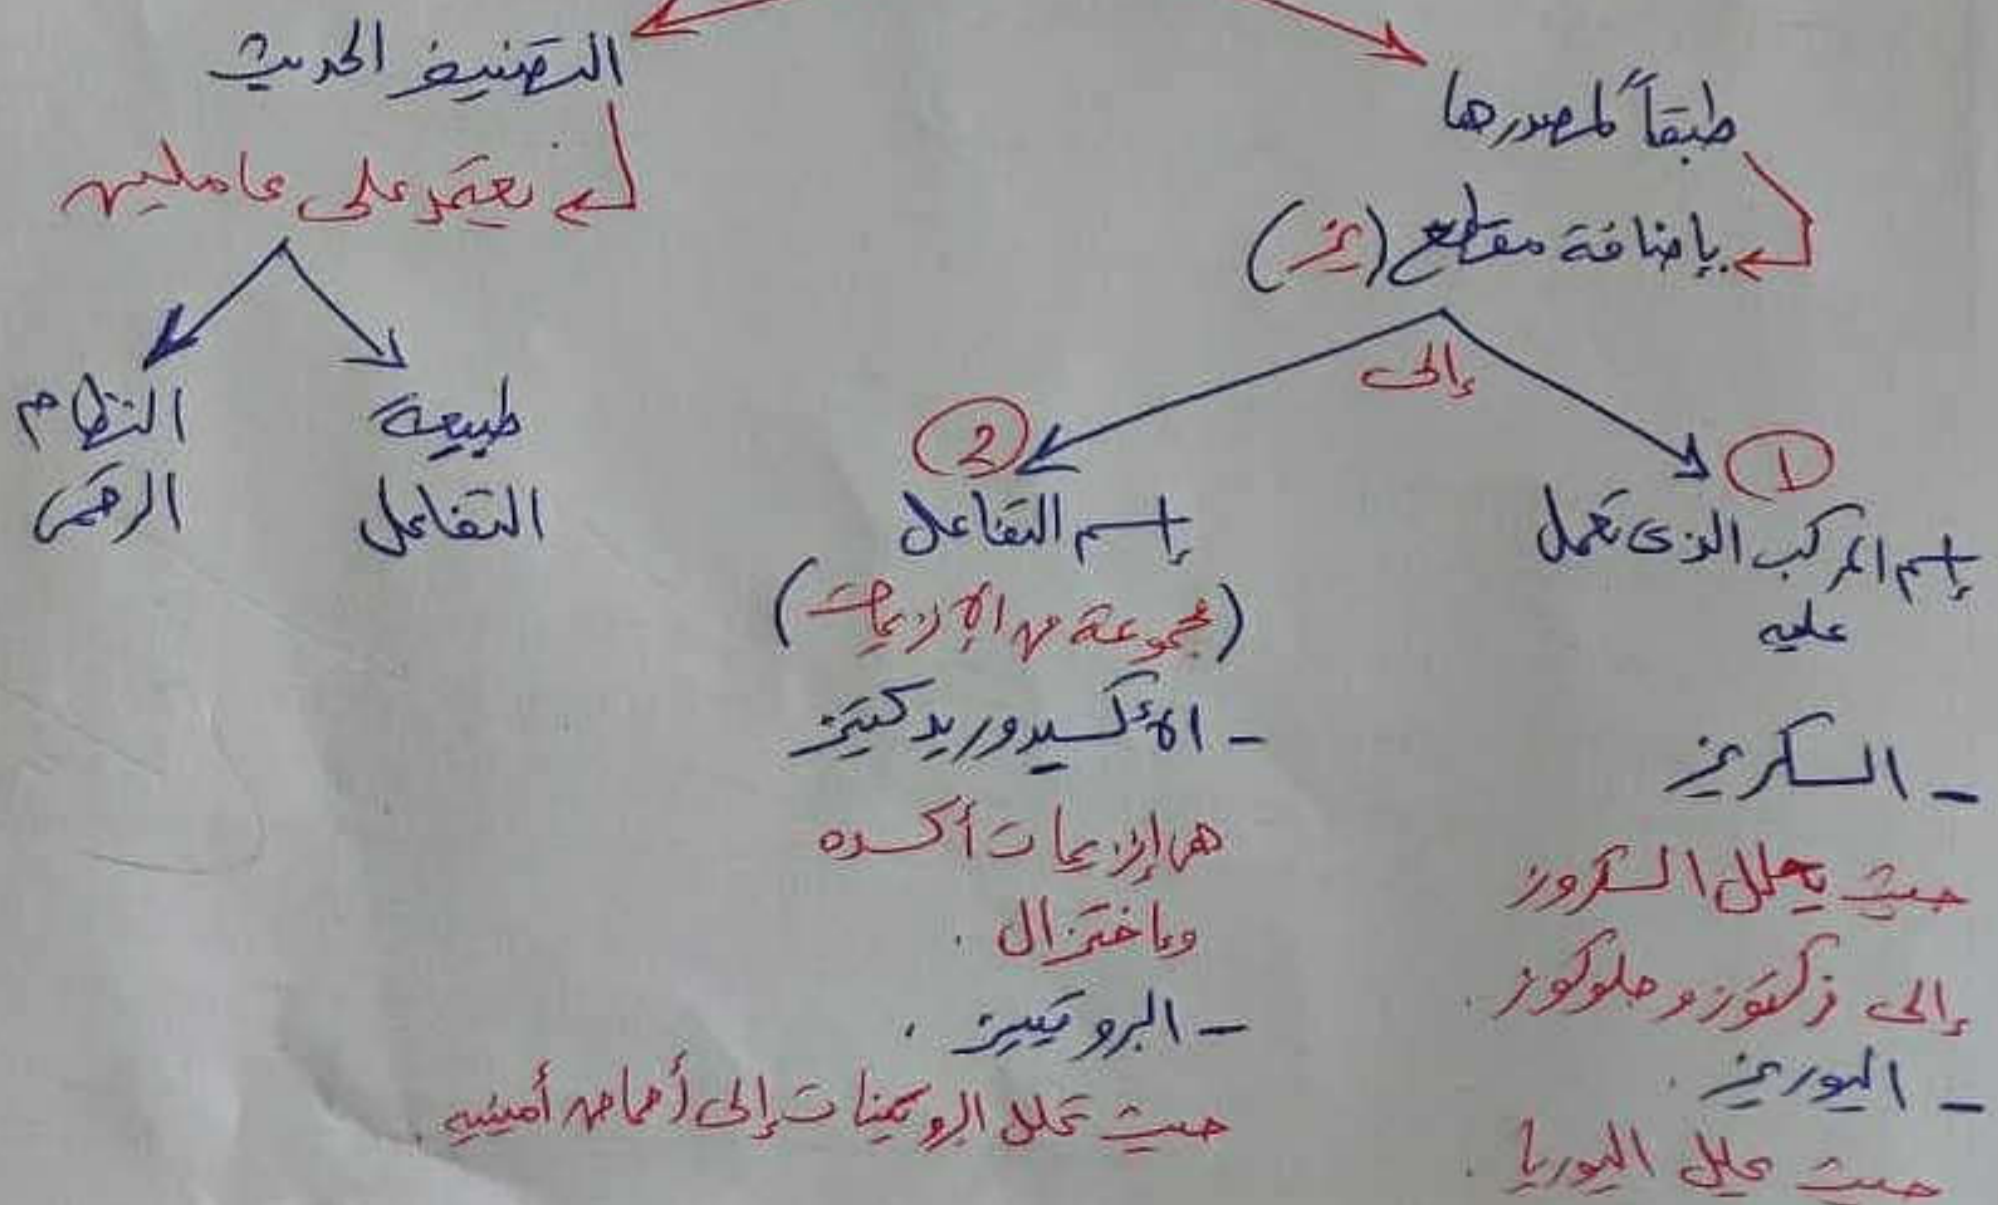 طبقاً لمصدرها
بإضافة مقطع (يز)
إلى
1
إسم المركب الذى تعمل
عليه
- السكريز
حيث يحلل السكروز
إلى فركتوز وجلوكوز.
- اليوريز.
حيث يحلل اليوريا.
2
إسم التفاعل
(مجموعة من الإنزيمات)
- الأكسيدوريدكتيز
هى إنزيمات أكسده
وإختزال.
- البروتييز.
حيث تحلل البروتينات إلى أحماض أمينيه.
التصنيف الحديث
يعتمد على عاملين
طبيعة
التفاعل
النظام
الرقمى